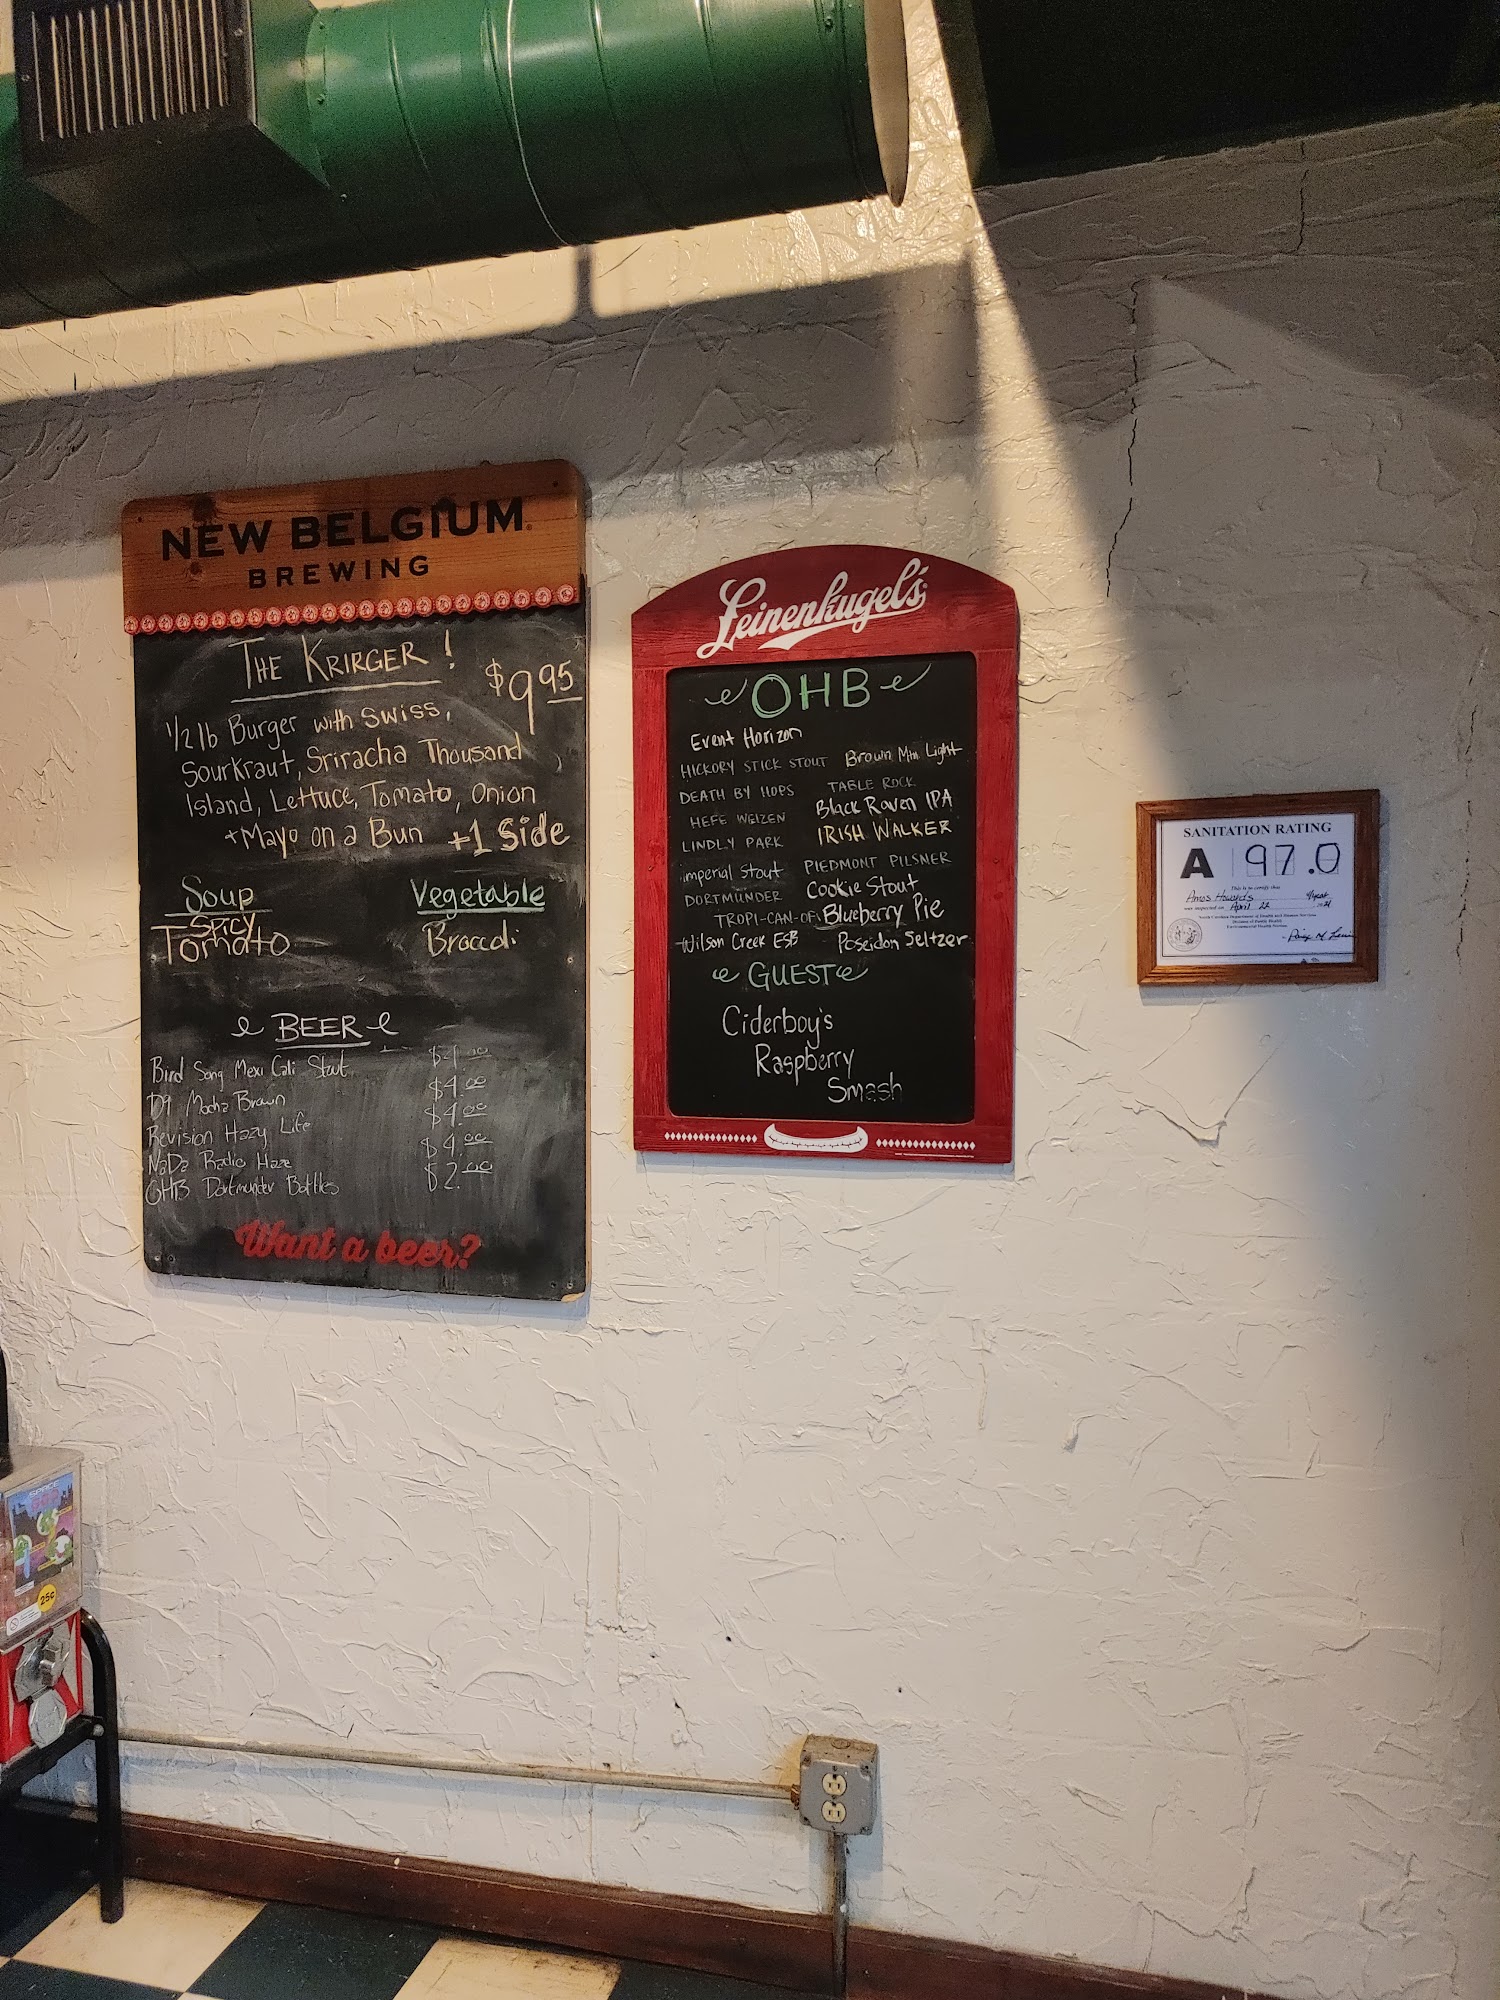 NEW BELGIUM
BREWING
THE KRIRGER!
$9.95
1/2 lb Burger with Swiss,
Sourkraut, Sriracha Thousand
Island, Lettuce, Tomato, Onion
+Mayo on a Bun +1 Side
Soup
Spicy
Tomato
Vegetable
Broccoli
BEER
Bird Song Mexi Cali Stout $4.00
D9 Mocha Brown $4.00
Revision Hazy Life $4.00
NaDa Radio Haze $4.00
OHB Dortmunder Bottles $2.00
Want a beer?
Leinenkugel's
OHB
Event Horizon
HICKORY STICK STOUT
DEATH BY HOPS
HEFE WEIZEN
LINDLY PARK
imperial stout
DORTMUNDER
TROPI-CAN-OF
Wilson Creek ESB
Brown Mtn. Light
TABLE ROCK
Black Raven IPA
IRISH WALKER
PIEDMONT PILSNER
Cookie Stout
Blueberry Pie
Poseidon Seltzer
GUEST
Ciderboy's
Raspberry
Smash
SANITATION RATING
A 97.0
This is to certify that
Amos Howards
was inspected on April 22
North Carolina Department of Health and Human Services
Division of Public Health
Environmental Health Section
SPACE
25¢